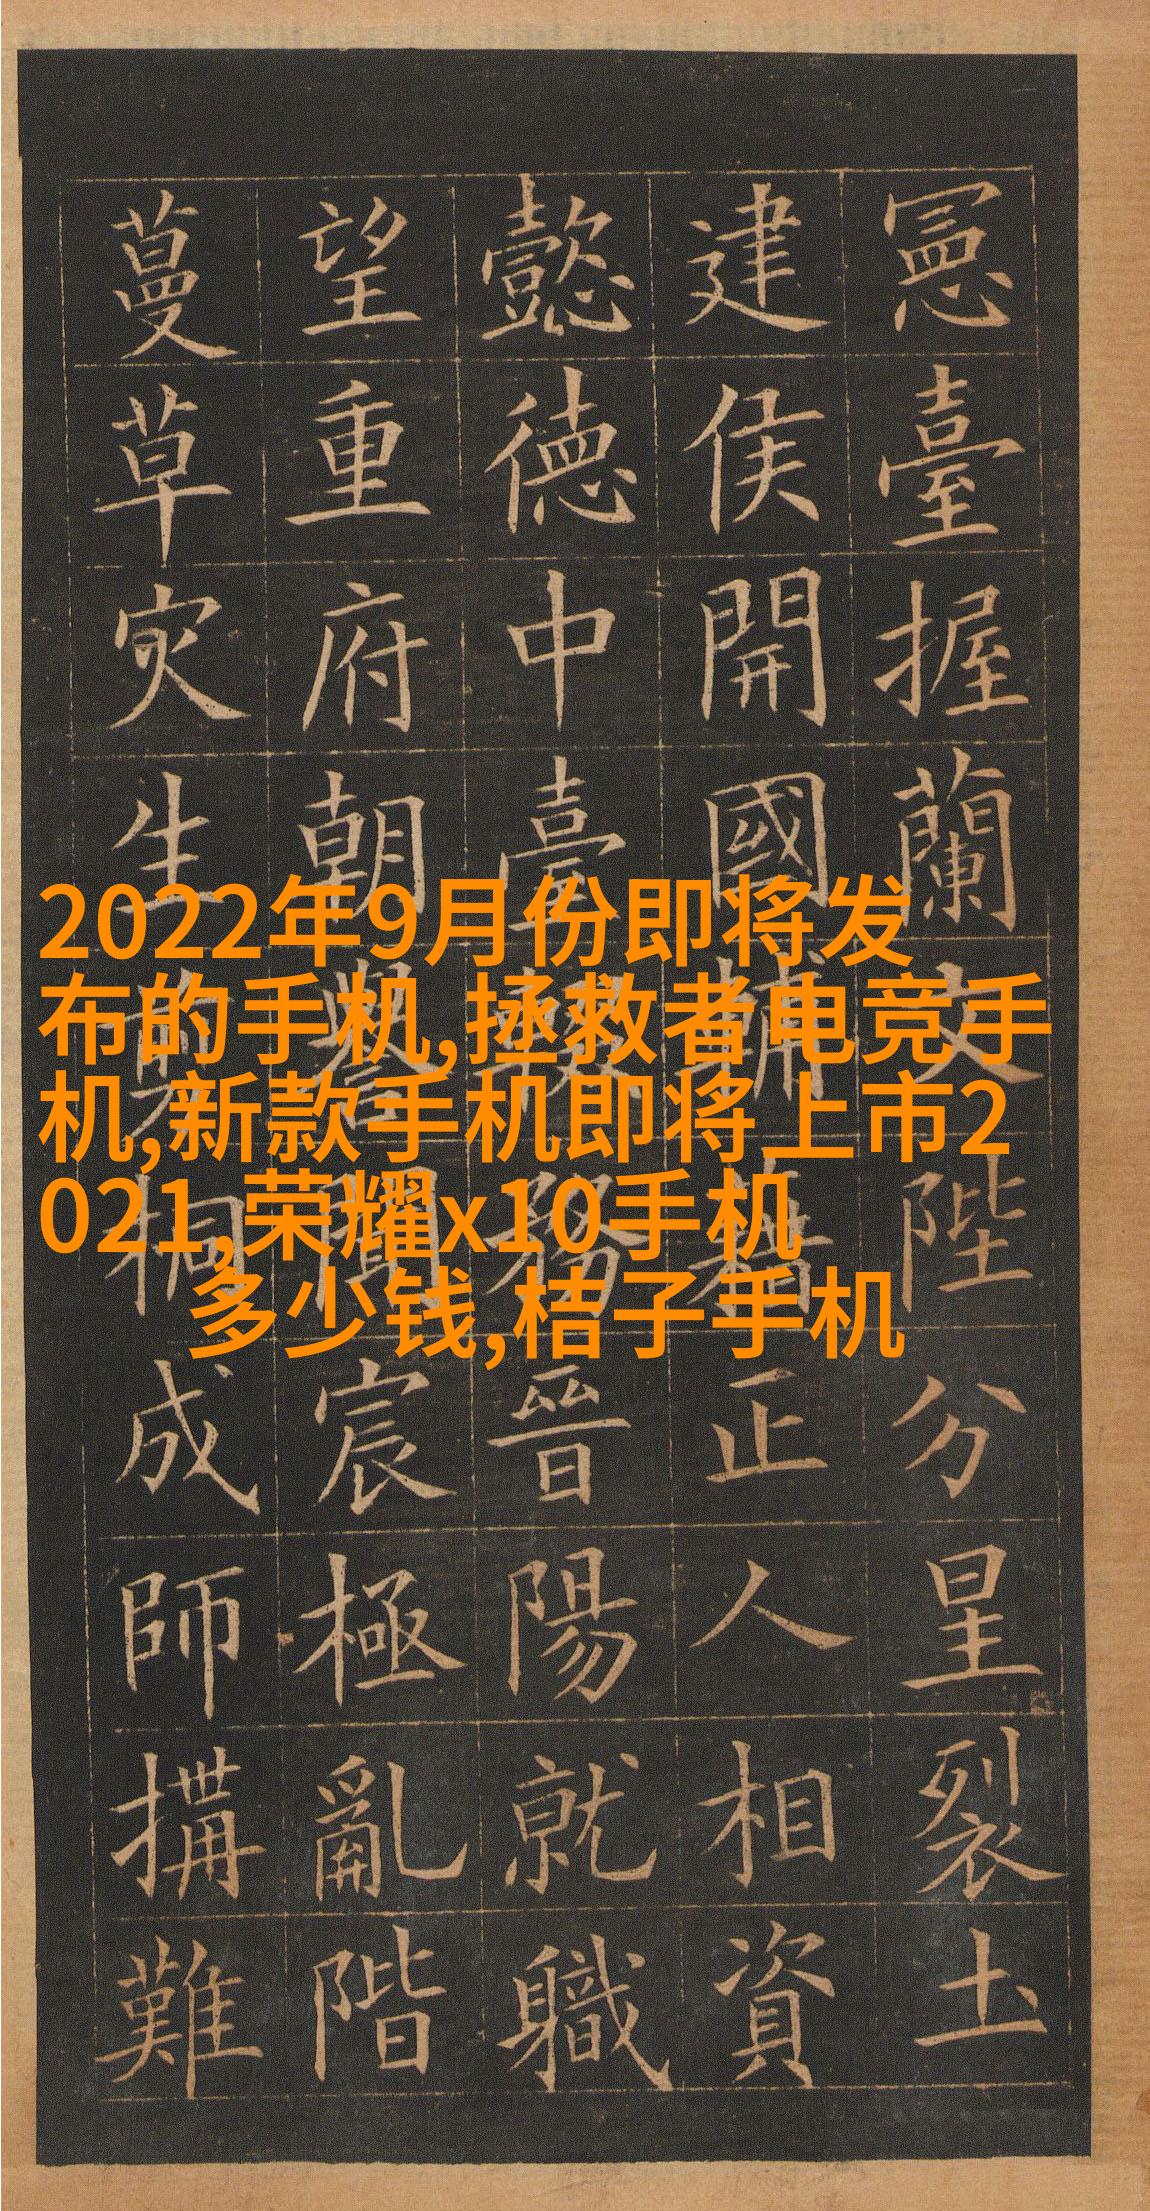 憲臺握蘭文陛分星裂土
建侯開國輔藉正人相資
懿德中臺務晉陽就職
望重府朝譽聞宸極亂階
蔓草灾生剪桐成師搆難
2022年9月份即将发
布的手机,拯救者电竞手
机,新款手机即将上市2
021,荣耀x10手机
多少钱,桔子手机